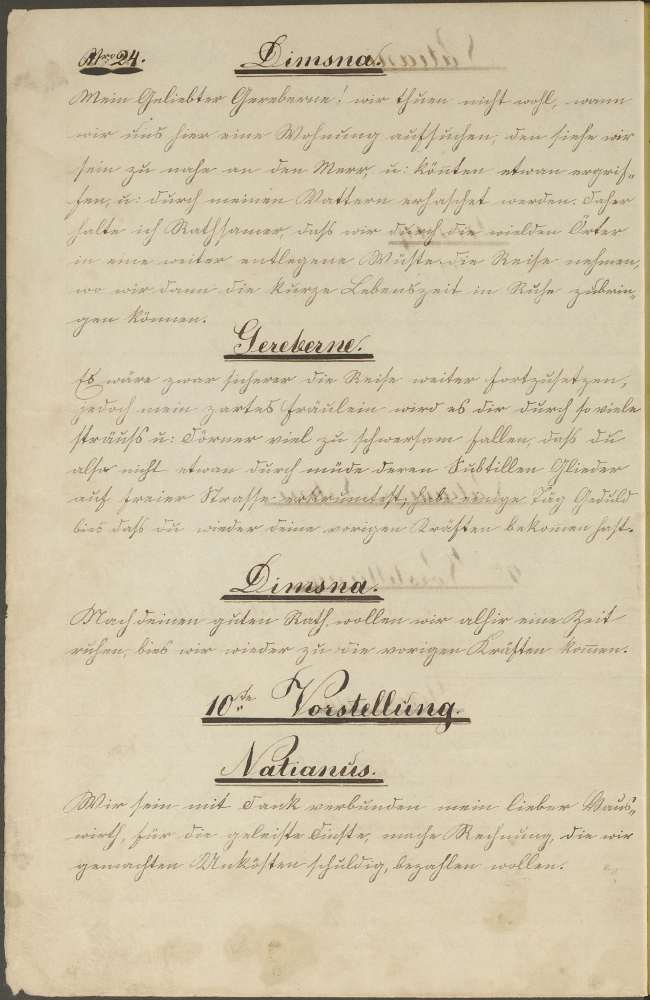 Nro 24. Dimsna.
Mein Geliebter Gereberne! wir thuen nicht wohl, wann
wir uns hier eine Wohnung aufsuchen, den siehe wir
sein zu nahe an den Merr, u: könten etwan ergrif„
fen, u: durch meinen Vattern erhaschet werden. Daher
halte ich Rathsamer, daß wir durch die wielden Örter
in eine weiter entlegene Wüste die Reise nehmen,
wo wir dann die kurze Lebenszeit in Ruhe zubrin„
gen können.
Gereberne.
Es wäre zwar sicherer die Reise weiter fortzusetzen,
jedoch mein zartes Fräulein wird es dir durch so viele
sträuß u: Dörner viel zu schwersam fallen, daß du
also nicht etwan durch müde deren Subtillen Glieder
auf freier Strasse erkrumtest, habe einige Täg Geduld
bies daß du wieder deine vorigen Kräften bekomen hast.
Dimsna.
Nach deinen guten Rath wollen wir alhir eine Zeit
ruhen, bies wir wieder zu die vorigen Kräften komen.
10te Vorstellung.
Natianus.
Wir sein mit Dank verbunden mein lieber Haus„
wirth, für die geleiste Dinste, mache Rechnung, die wir
gemachten Unkösten schuldig, bezahlen wollen.